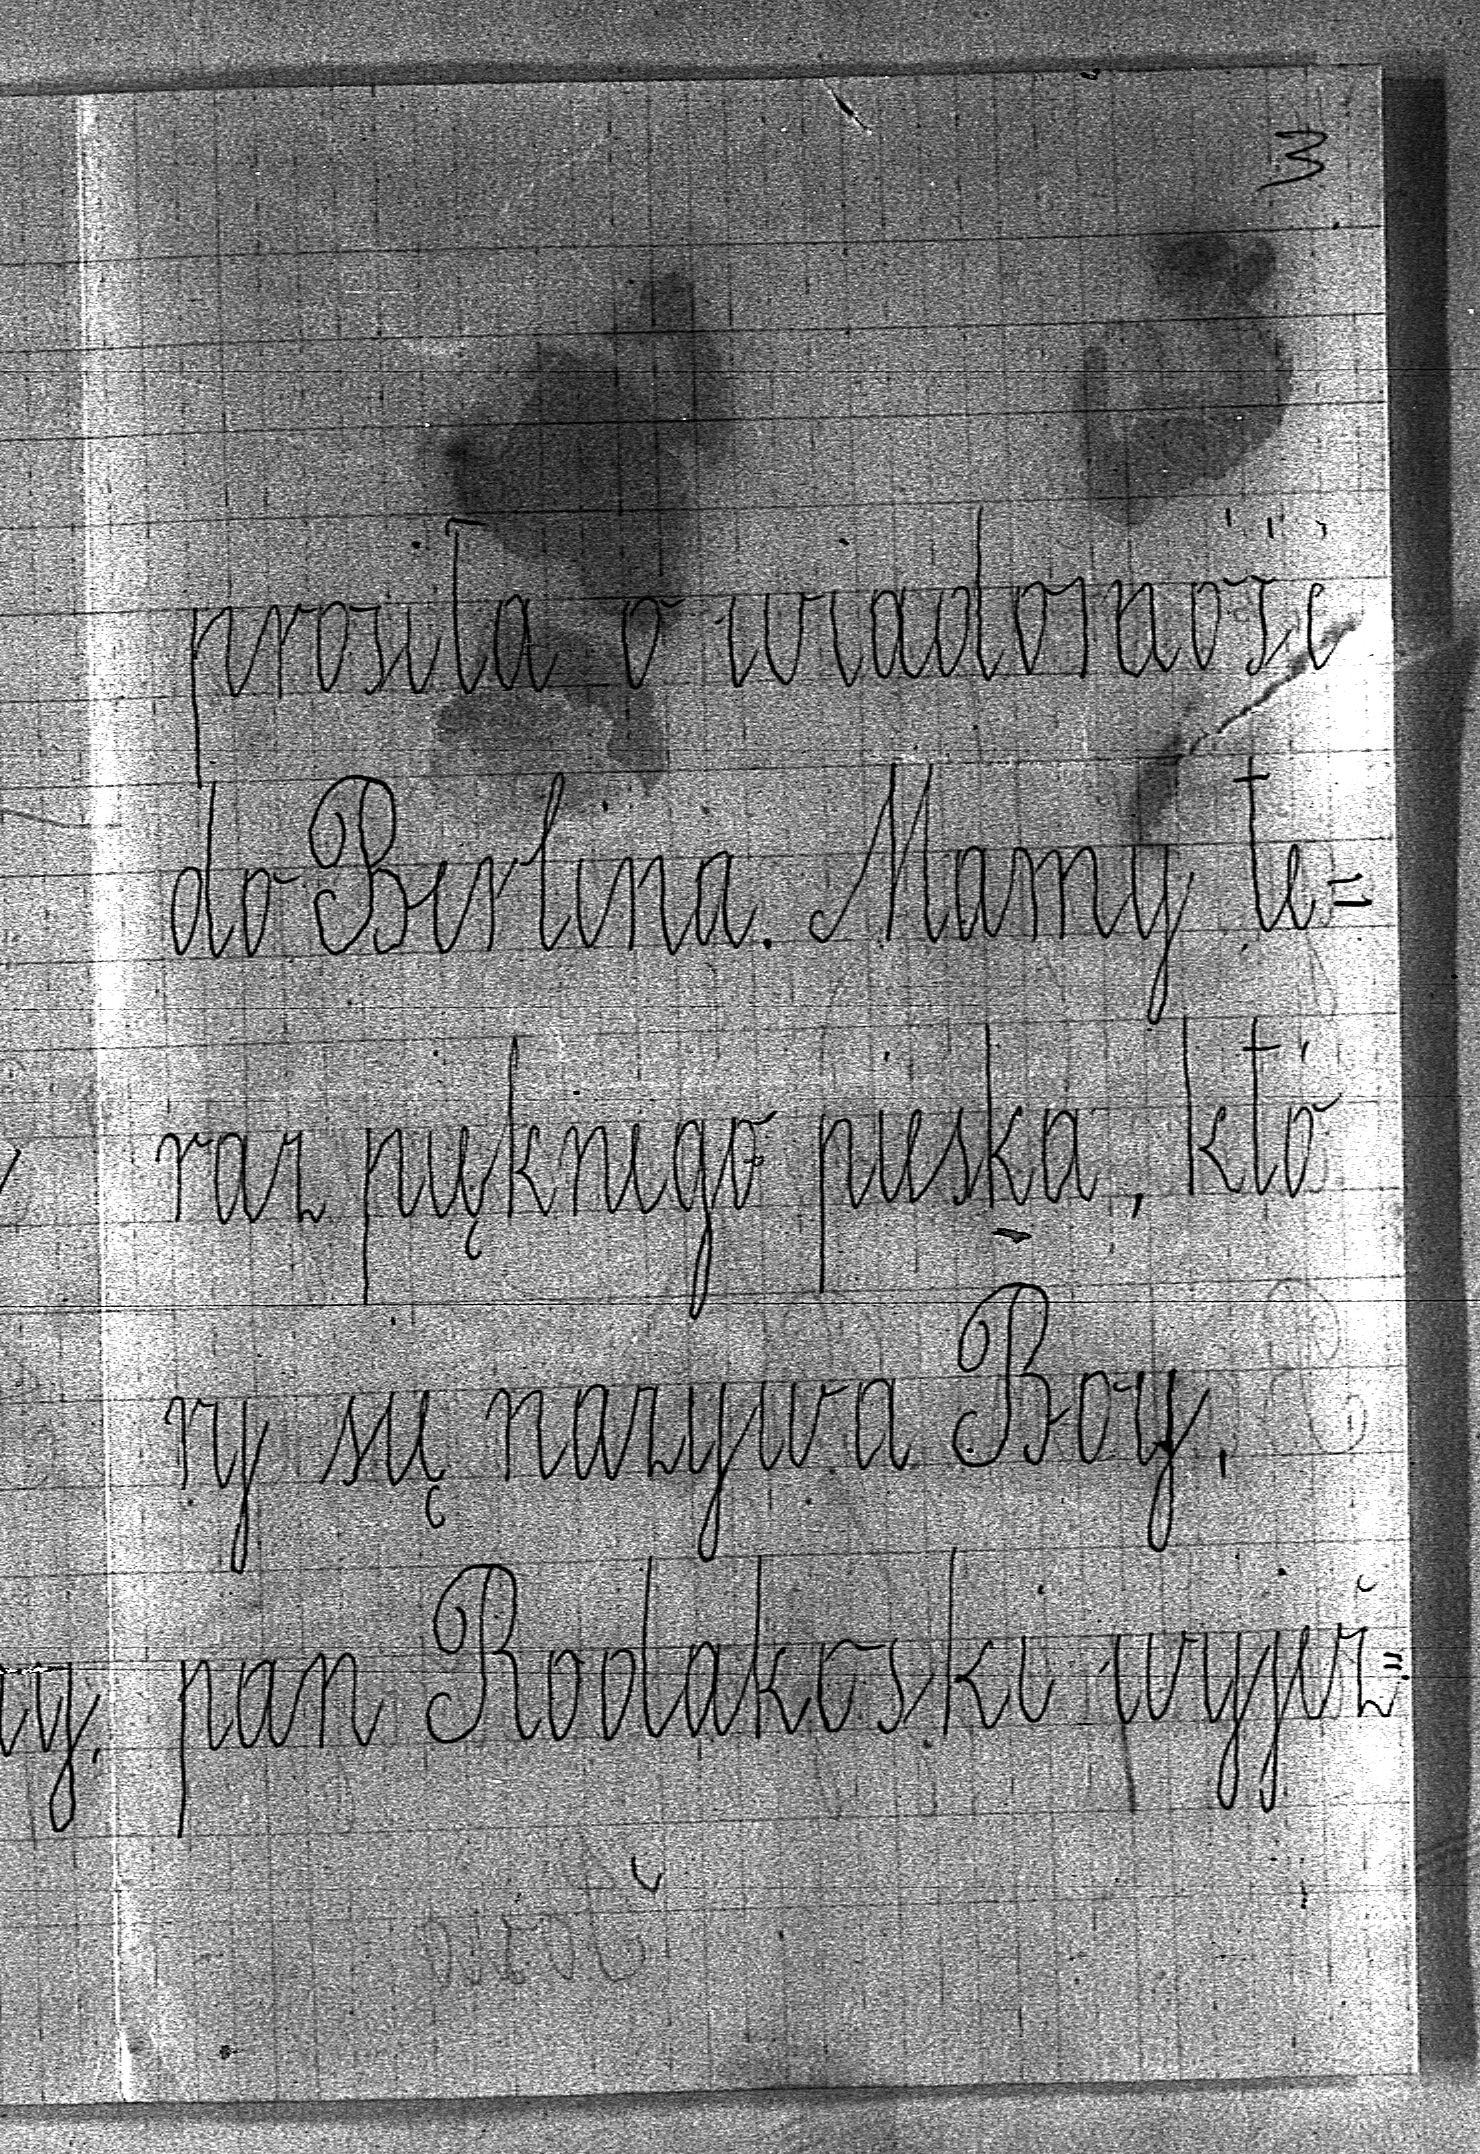 3
prosiła o wiadomość
do Berlina. Mamy te=
raz pięknego pieska, któ
ry się nazywa Boy.
pan Rodakoski wyjeż=